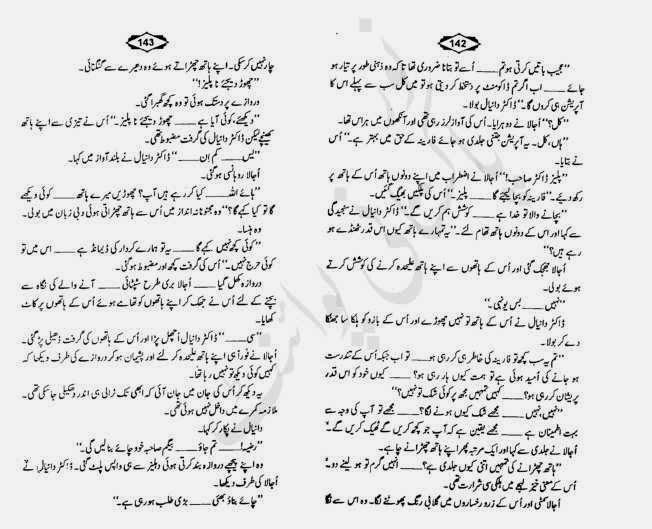 142
”عجیب باتیں کرتی ہو تم ـــــ اُسے تو بتانا ضروری تھا تا کہ وہ ذہنی طور پر تیار ہو
جائے ـــــ اب اگر تم ڈاکومنٹ پر دستخط کر دیتی ہو تو میں کل سب سے پہلے اس کا
آپریشن ہی کروں گا۔“ ڈاکٹر دانیال بولا۔
”کل؟“ اُجالا نے دوہرایا۔ اُس کی آواز لرز رہی تھی اور آنکھوں میں ہراس تھا۔
”ہاں، کل۔ یہ آپریشن جتنی جلدی ہو جائے فارینہ کے حق میں بہتر ہے۔“ اُس
نے بتایا۔
”پلیز ڈاکٹر صاحب!“ اُجالا نے اضطراب میں اپنے دونوں ہاتھ اُس کے ہاتھ پر
رکھ دیئے۔ ”فارینہ کو بچا لیجئے گا ـــــ پلیز۔“ اُس کی پلکیں بھیگ گئیں۔
”بچانے والا تو خدا ہے ـــــ کوشش ہم کریں گے۔“ ڈاکٹر دانیال نے سنجیدگی
سے کہا اور اس کے دونوں ہاتھ تھام لئے۔ ”یہ تمہارے ہاتھ کیوں اس قدر ٹھنڈے ہو
رہے ہیں؟“
اُجالا جھجک گئی اور اُس کے ہاتھوں سے اپنے ہاتھ علیحدہ کرنے کی کوشش کرتے
ہوئے بولی۔
”نہیں ـــــ بس یونہی۔“
ڈاکٹر دانیال نے اُس کے ہاتھ تو نہیں چھوڑے اور اُس کے بازو کو ہلکا سا جھٹکا
دے کر بولا۔
”تم یہ سب کچھ تو فارینہ کی خاطر ہی کر رہی ہو ـــــ تو اب جبکہ اُس کے تندرست
ہو جانے کی اُمید ہوئی ہے تو ہمت کیوں ہار رہی ہو؟ ـــــ کیوں خود کو اس قدر
پریشان کر رہی ہو؟ ـــــ کہیں تمہیں مجھ پر کوئی شک تو نہیں؟“
”نہیں، نہیں ـــــ مجھے شک کیوں ہونے لگا؟ ـــــ مجھے تو آپ کی وجہ سے
بہت اطمینان ہے ـــــ مجھے یقین ہے کہ آپ جو کچھ کریں گے ٹھیک کریں گے۔“
اُجالا نے جلدی سے کہا اور ایک مرتبہ پھر اپنے ہاتھ چھڑانے چاہے۔
”ہاتھ چھڑانے کی تمہیں اتنی کیوں جلدی ہے؟ ـــــ انہیں گرم تو ہو لینے دو۔“
اُس کے معنی خیز لہجے میں ہلکی سی شرارت تھی۔
اُجالا سمٹی اور اُس کے زرد رخساروں میں گلابی رنگ پھوٹنے لگا۔ وہ اس سے نگاہ
143
چار نہیں کر سکی۔ اپنے ہاتھ چھڑاتے ہوئے وہ دھیرے سے گنگنائی۔
”چھوڑ دیجئے نا پلیز!“
دروازے پر دستک ہوئی تو وہ کچھ گھبرا گئی۔
”دیکھئے، کوئی آیا ہے ـــــ چھوڑ دیجئے نا پلیز۔“ اُس نے تیزی سے اپنے ہاتھ
کھینچے لیکن ڈاکٹر دانیال کی گرفت مضبوط تھی۔
”یس ـــــ کم اِن ـــــ“ ڈاکٹر دانیال نے بلند آواز میں کہا۔
اُجالا روہانسی ہو گئی۔
”ہائے اللہ ـــــ کیا کر رہے ہیں آپ؟ چھوڑیں میرے ہاتھ ـــــ کوئی دیکھے
گا تو کیا کہے گا؟“ وہ مجنونانہ انداز میں اُس سے ہاتھ چھڑاتی ہوئی دبی زبان میں بولی۔
وہ ہنسا۔
”کوئی کچھ نہیں کہے گا ـــــ یہ تو ہمارے کردار کی ڈیمانڈ ہے ـــــ اس میں تو
کوئی حرج نہیں۔“ اُس کی گرفت کچھ اور مضبوط ہو گئی۔
دروازہ کھل گیا ـــــ اُجالا بری طرح سٹپٹائی ـــــ آنے والے کی نگاہ سے
بچنے کے لئے اُس نے جھک کر اپنے ہاتھوں کو تھامے ہوئے اُس کے ہاتھوں پر کاٹ
کھایا۔
”سی ـــــ“ ڈاکٹر دانیال اُچھل پڑا اور اُس کے ہاتھوں کی گرفت ڈھیلی پڑ گئی۔
اُجالا نے فوراً ہی اپنے ہاتھ علیحدہ کر لئے اور پشیمان ہو کر دروازے کی طرف دیکھا کہ
کہیں کوئی دیکھ تو نہیں رہا تھا۔
یہ دیکھ کر اُس کی جان میں جان آئی کہ ابھی تک ٹرالی ہی اندر دھکیلی جا سکی تھی۔
ملازمہ کمرے میں داخل نہیں ہوئی تھی۔
دانیال نے پکار کر کہا۔
”رضیہ! ـــــ تم جاؤ ـــــ بیگم صاحبہ خود چائے بنا لیں گی۔“
وہ اپنے پیچھے دروازہ بند کرتی ہوئی دہلیز سے ہی واپس پلٹ گئی۔ ڈاکٹر دانیال نے
اُجالا کی طرف دیکھا۔
”چائے بناؤ بھئی ـــــ بڑی طلب ہو رہی ہے۔“